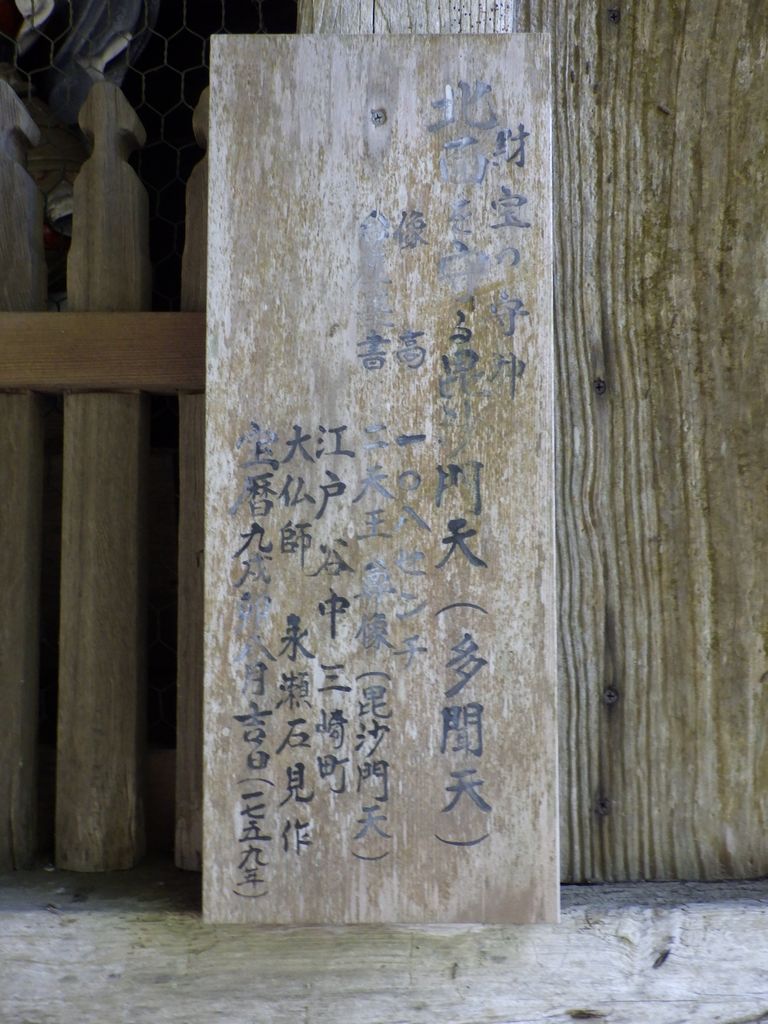 財宝の守神
北面を守る毘沙門天(多聞天)
像高 一〇八センチ
書 二天王尊像(毘沙門天)
江戸谷中三崎町
大仏師 永瀬石見作
宝暦九戌卯八月吉日(一七五九年)